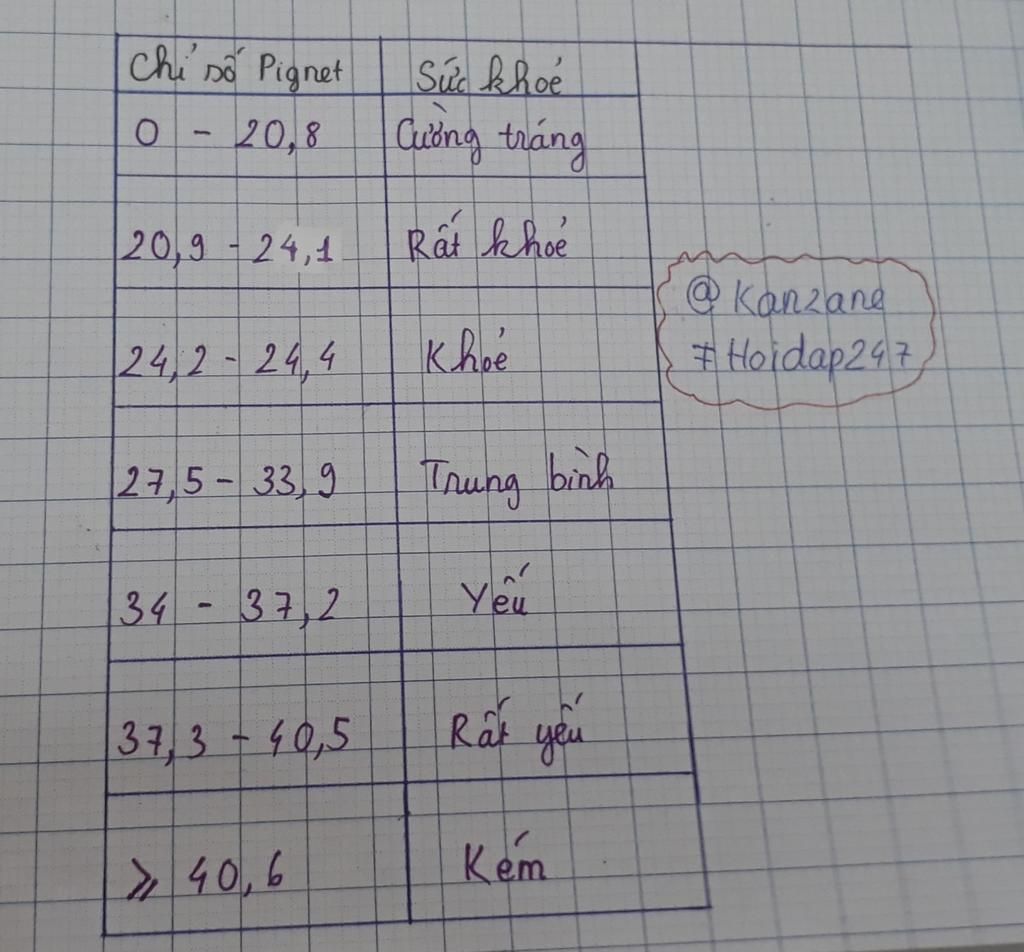 Chỉ số Pignet Sức khoẻ
0 - 20,8 Cường tráng
20,9 - 24,1 Rất khoẻ
24,2 - 24,4 Khoẻ
27,5 - 33,9 Trung bình
34 - 37,2 Yếu
37,3 - 40,5 Rất yếu
⩾ 40,6 Kém
@Kanzane
#Hoidap247